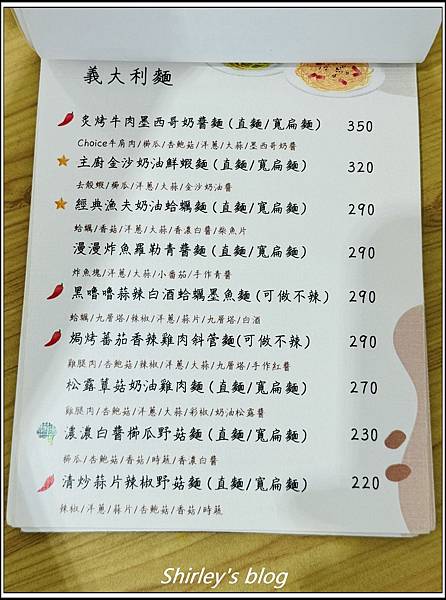 義大利麵
炙烤牛肉墨西哥奶醬麵(直麵/寬扁麵) 350
Choice牛肩肉/櫛瓜/杏鮑菇/洋蔥/大蒜/墨西哥奶醬
主廚金沙奶油鮮蝦麵(直麵/寬扁麵) 320
去殼蝦/櫛瓜/洋蔥/大蒜/金沙奶油醬
經典漁夫奶油蛤蠣麵(直麵/寬扁麵) 290
蛤蠣/香菇/洋蔥/大蒜/香濃白醬/柴魚片
漫漫炸魚羅勒青醬麵(直麵/寬扁麵) 290
炸魚塊/洋蔥/大蒜/小番茄/手作青醬
黑嚕嚕蒜辣白酒蛤蠣墨魚麵(可做不辣) 290
蛤蠣/九層塔/辣椒/洋蔥/蒜片/九層塔/白酒
焗烤蕃茄香辣雞肉斜管麵(可做不辣) 290
雞腿肉/杏鮑菇/辣椒/洋蔥/大蒜/九層塔/手作紅醬
松露蕈菇奶油雞肉麵(直麵/寬扁麵) 270
雞腿肉/杏鮑菇/洋蔥/大蒜/彩椒/奶油松露醬
濃濃白醬櫛瓜野菇麵(直麵/寬扁麵) 230
櫛瓜/杏鮑菇/香菇/時蔬/香濃白醬
清炒蒜片辣椒野菇麵(直麵/寬扁麵) 220
辣椒/洋蔥/蒜片/杏鮑菇/香菇/時蔬
Shirley's blog